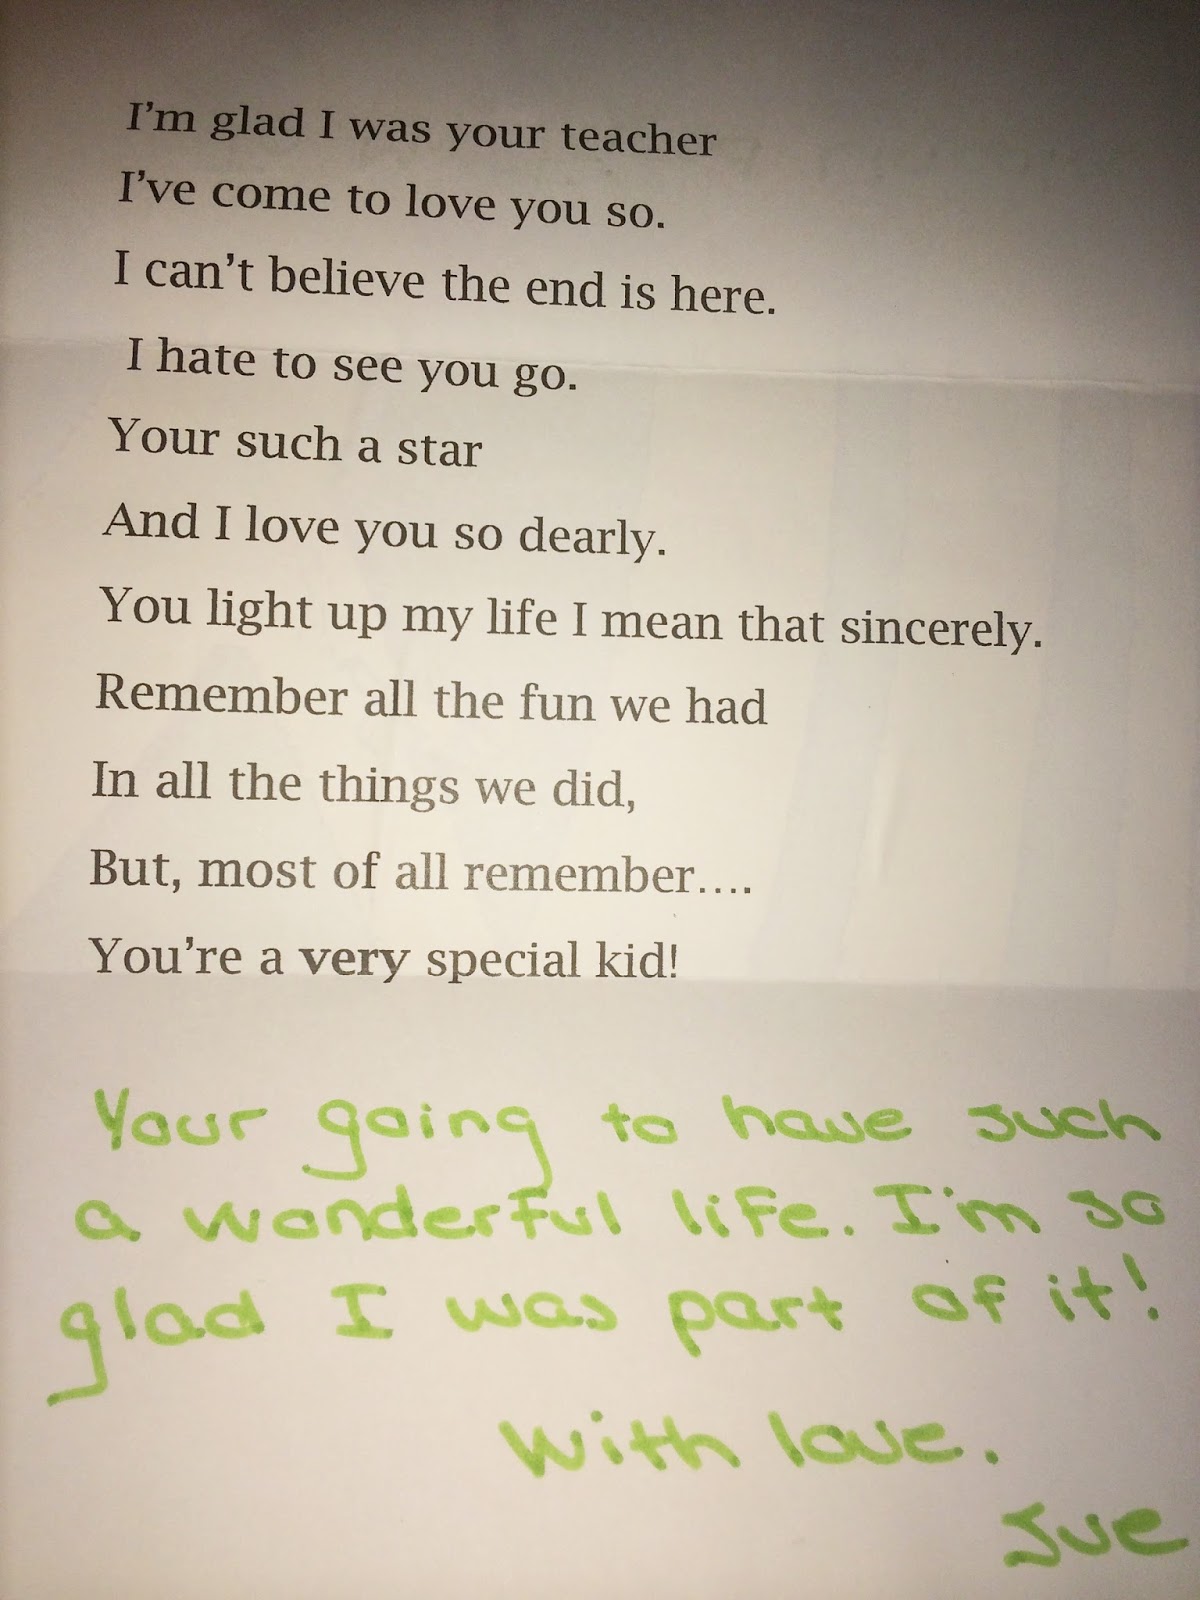 I'm glad I was your teacher
I've come to love you so.
I can't believe the end is here.
I hate to see you go.
Your such a star
And I love you so dearly.
You light up my life I mean that sincerely.
Remember all the fun we had
In all the things we did,
But, most of all remember....
You're a very special kid!
Your going to have such
a wonderful life. I'm so
glad I was part of it!
With love.
Sue